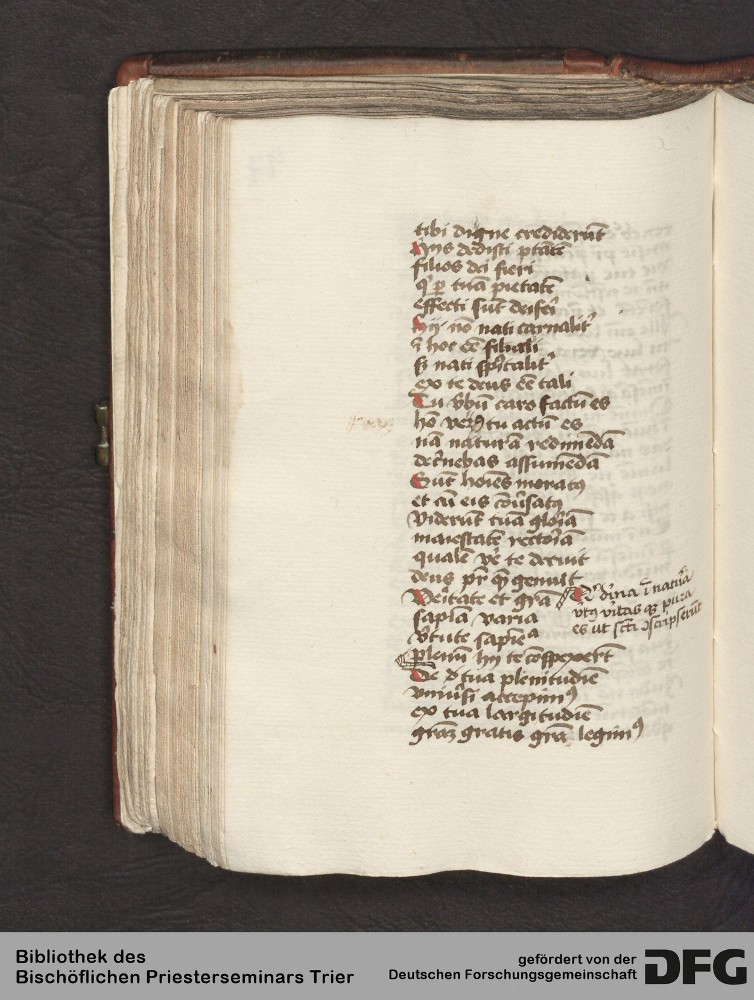 tibi digne crediderūt
Hijs dedisti ptātē
filios dei fieri
qͥ ꝑ tuā pietatē
effecti sūt deiferi
Hij nō nati carnalit᷑
ī hoc ēē filiali
sꝫ nati spūalit᷑
ex te deus ēē tali
Tu v̄bū caro factū es
hō verꝰ tu actū es
nā naturā redimēdā
decͥnebas assumēdā
Sūt hoīes moratꝰ
et cū eis cōūsatꝰ
viderūt tuā gloͥā
maiestatē rectoͥā
qualē vͤ te decuit
deus pr̄ qͥ genuit
Veͥtate et grā
sapīa varia
v̄tute sapīe
plenū hij te cōspexerūt
De tua plenitudīe
vniūsi accepimꝰ
ex tua largitudīe
grāꝫ gratis grā legimꝰ
dīna ī natūa
vtqꝫ v̄itas pura
es ut scti ꝯscripserūt
Bibliothek des
Bischöflichen Priesterseminars Trier
gefördert von der
Deutschen Forschungsgemeinschaft
DFG